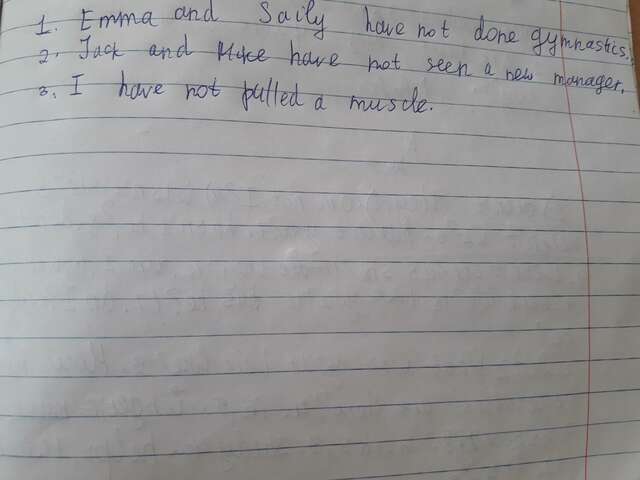 1. Emma and Saily have not done gymnastics.
2. Jack and Mike have not seen a new manager.
3. I have not pulled a muscle.